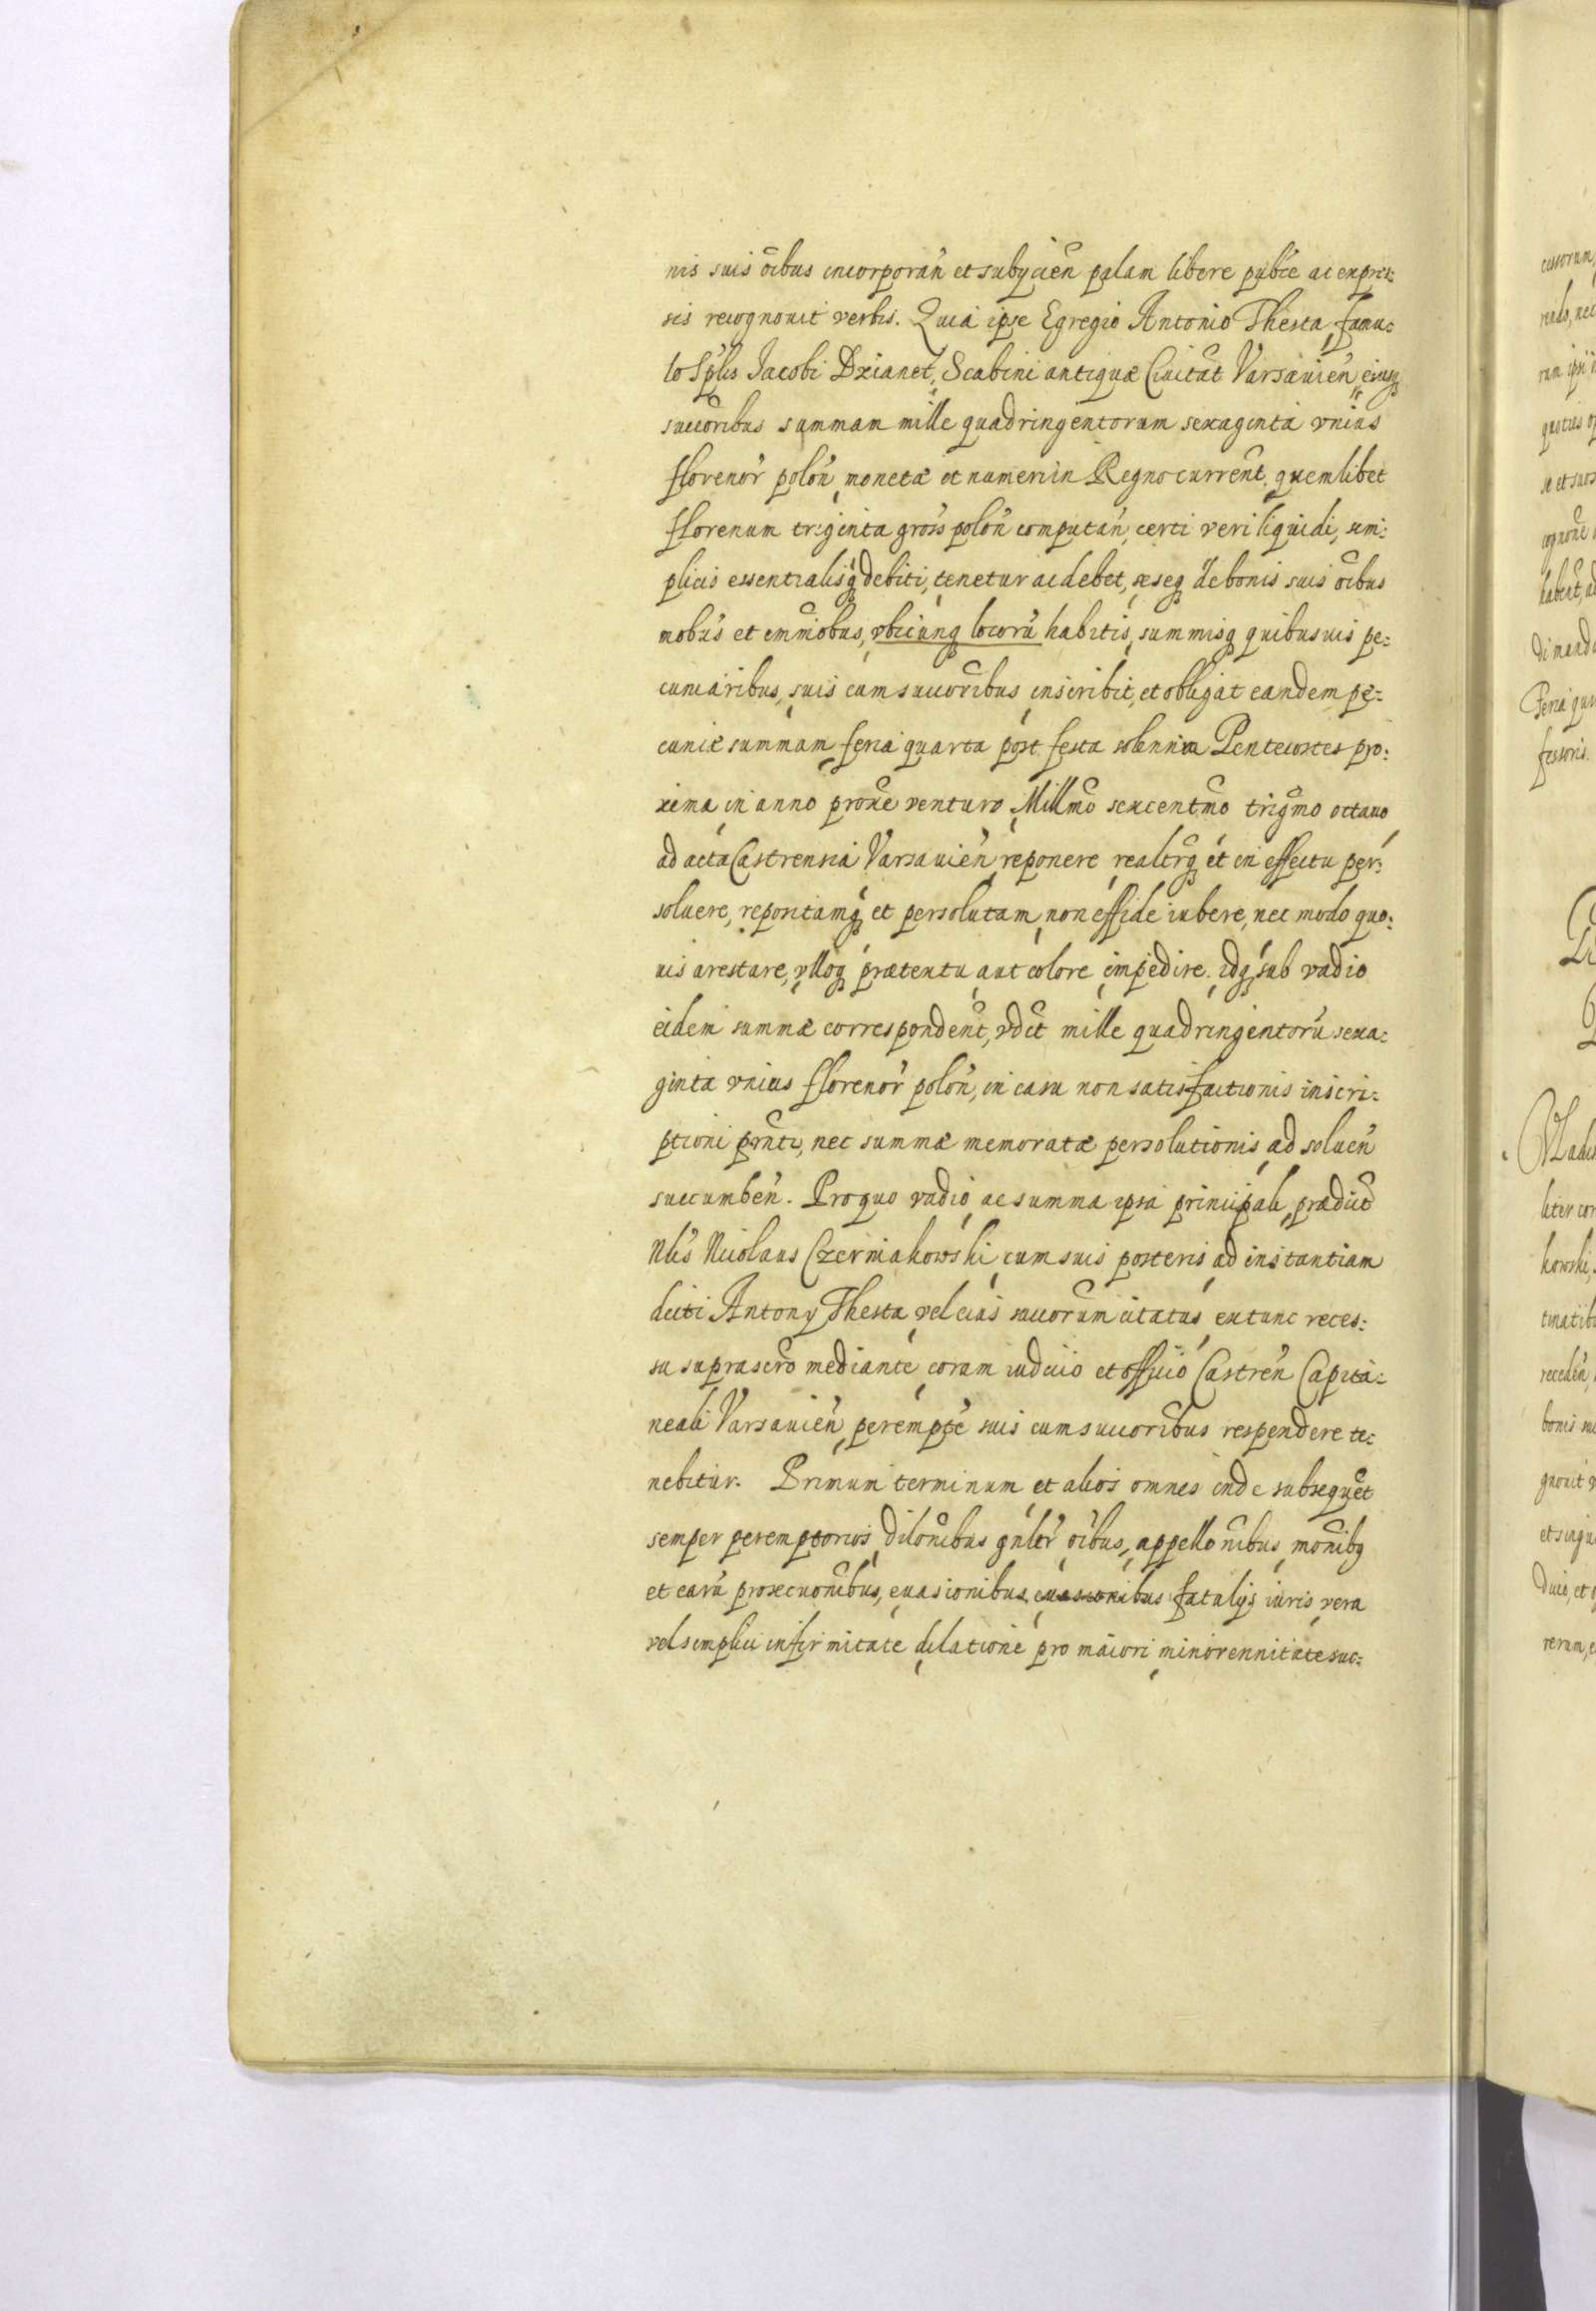 nis suis oībus incorporań et subijcień palam libere publće ac expres:
sis recognouit verbis. Quia ipse Egregio Antonio Thesta, famu:
lo Splis Jacobi Dzianet, Scabini antiquæ Ciuitat Varsauień eiusq
succoribus summam mille quadringentorum sexaginta vnius
florenor polon, monetæ et numeri in Regno current, quemlibet
florenum triginta gross polon computan, certi veri liquidi, sim:
plicis essentialisq debiti, tenetur ac debet, seseq de bonis suis oibus
mobus et immobus, vbicunq locoru habitis, summisq quibusuis pe:
cuniaribus, suis cum succoribus inscribit, et obligat eandem pe:
cuniæ summam feria quarta post festa solennia Pentecostes pro:
xima in anno proxe venturo Millmo sexcentmo trigmo octauo
ad acta Castrensia Varsauien reponere realtrq et in effectu per:
soluere, repositamq et persolutam non effide iubere, nec modo quo:
uis arestare, vlloq prætextu aut colore impedire. idq sub vadio
eidem summæ correspondent, vdct mille quadringentoru sexa:
ginta vnius florenor polon, in casu non satisfactionis inscri:
ptioni prnti, nec summæ memoratæ persolutionis ad soluen
succumben. Pro quo vadio ac summa ipsa principali prædict
Nlis Nicolaus Czerniakowski cum suis posteris ad instantiam
dicti Antonij Thesta vel eius succorum citatus extunc reces:
su suprascro mediante coram iudicio et officio Castren Capita:
neali Varsauien peremptе suis cum succoribus respondere te:
nebitur. Primum terminum et alios omnes inde subsequet
semper peremptorios, dilonibus gnler oibus, appellonibus monibq
et earu prosecuonibus, euasionibus, euasionibus fatalijs iuris, vera
vel simplici infirmitate dilatione pro maiori minorennitate suc: